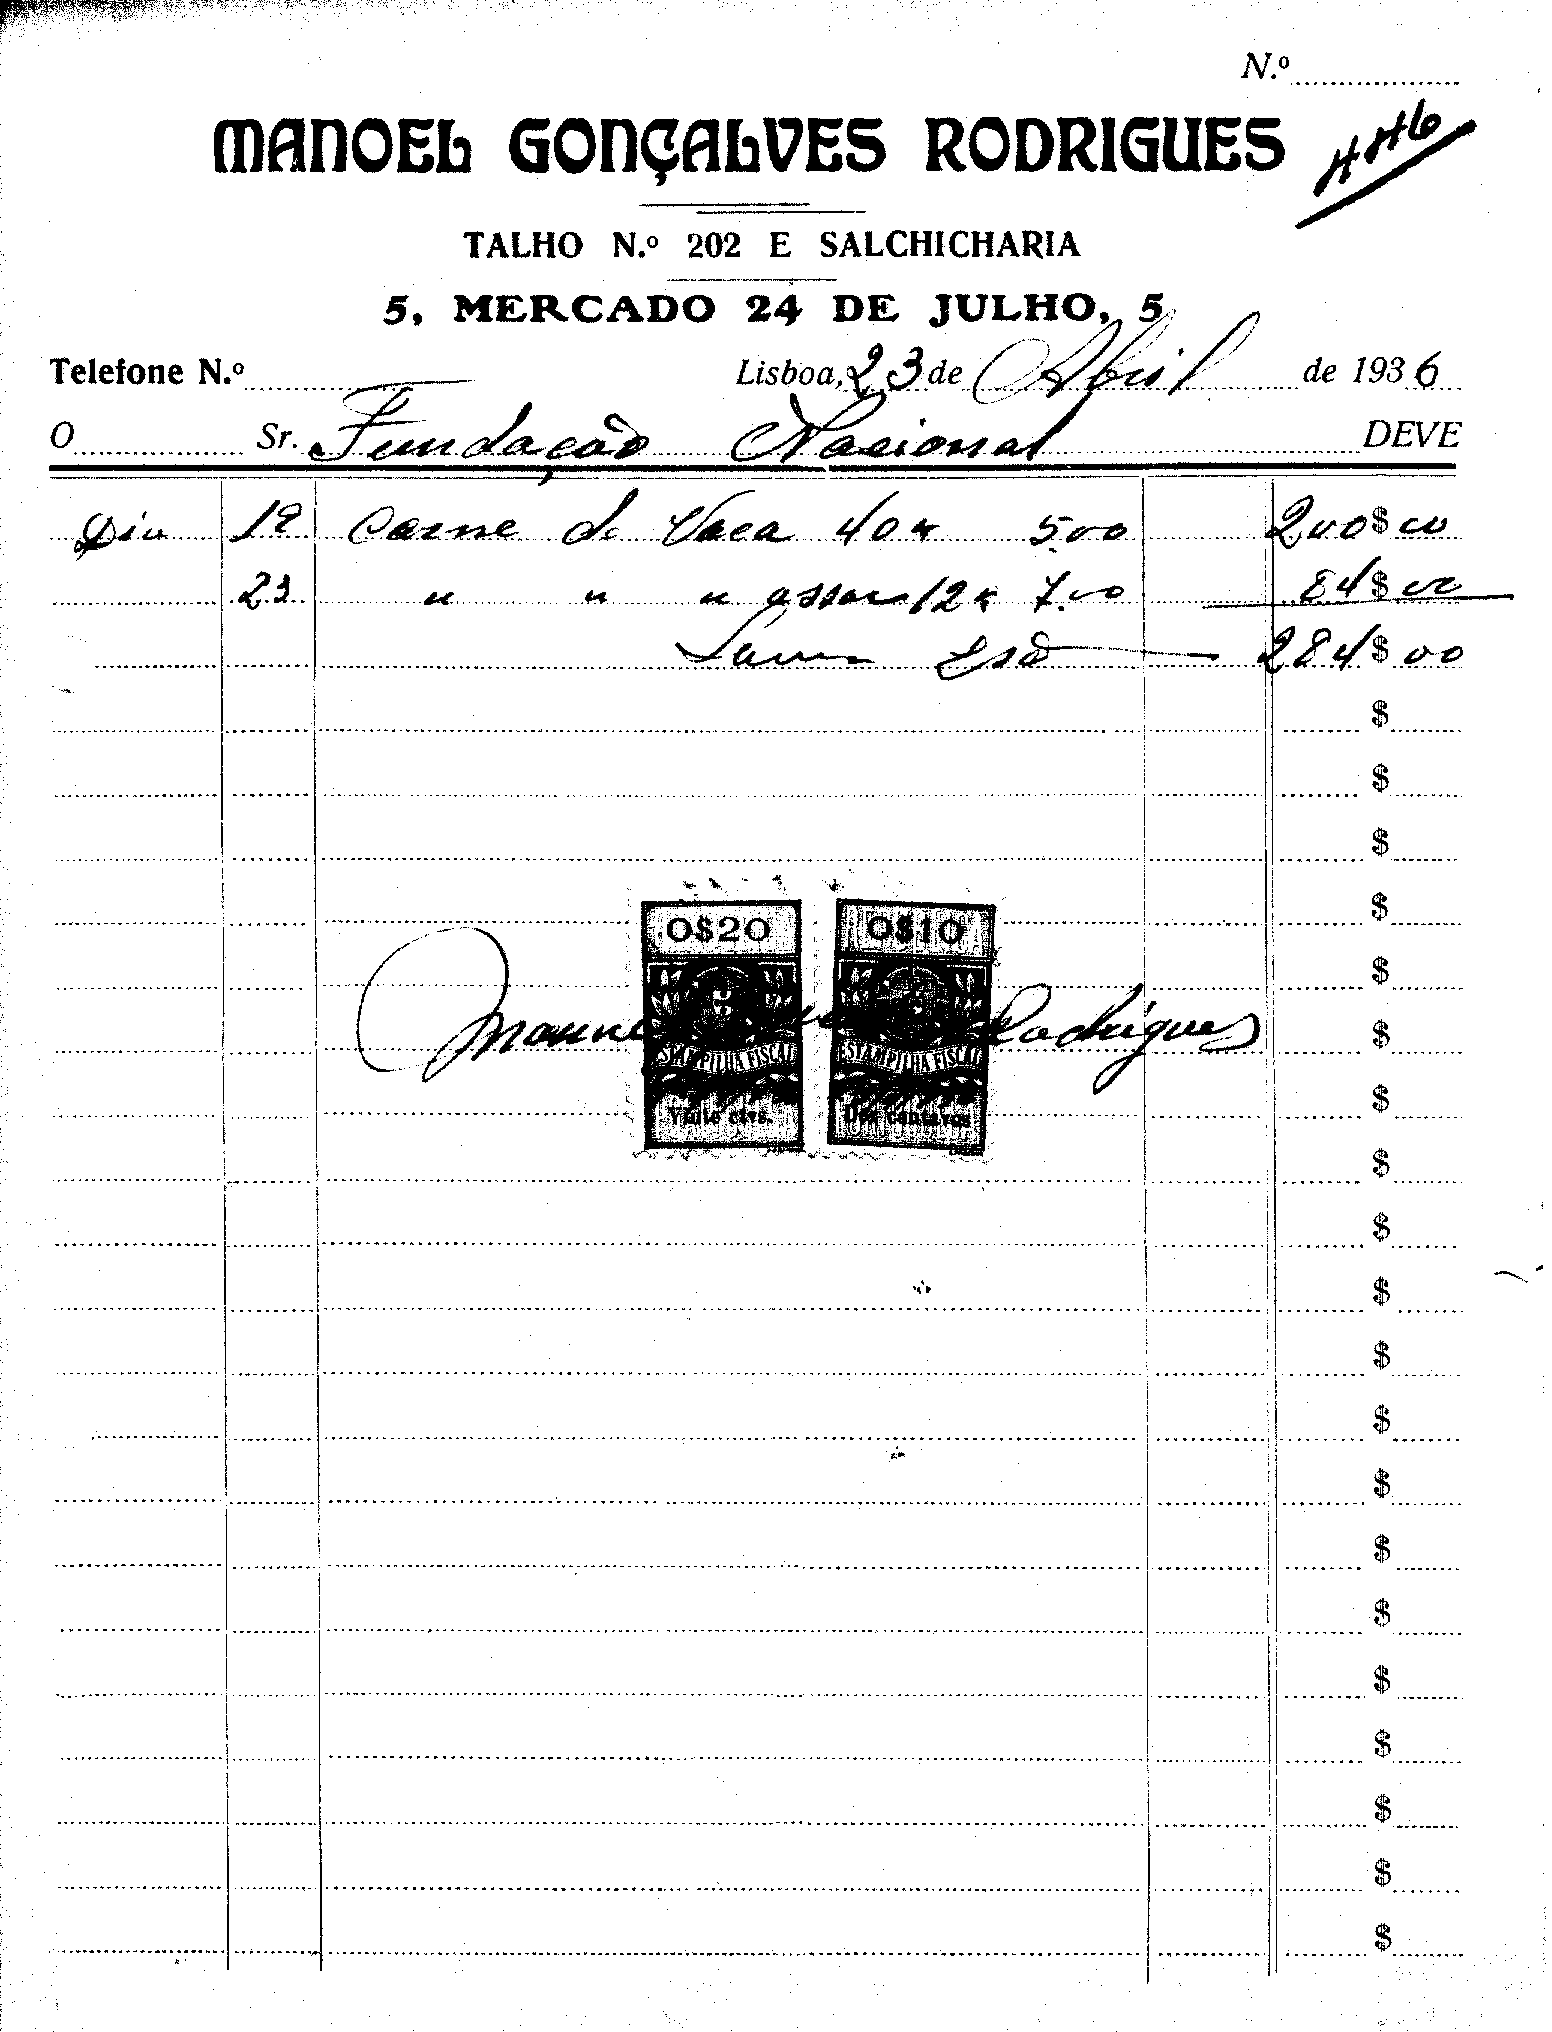 N.º
MANOEL GONÇALVES RODRIGUES
446
TALHO N.º 202 E SALCHICHARIA
5, MERCADO 24 DE JULHO, 5
Telefone N.º Lisboa, 23 de Abril de 1936
O Sr. Fundação Nacional DEVE
Dia 19 Carne de Vaca 40 k 5.00 200$00
23 " " " assar 12 k 7.00 84$00
Soma Esc 284$00
$
$
$
$
0$20 0$10
$
Manuel Rodrigues
$
ESTAMPILHA FISCAL ESTAMPILHA FISCAL
$
Vinte ctvs. Dez centavos
$
$
$
$
$
$
$
$
$
$
$
$
$